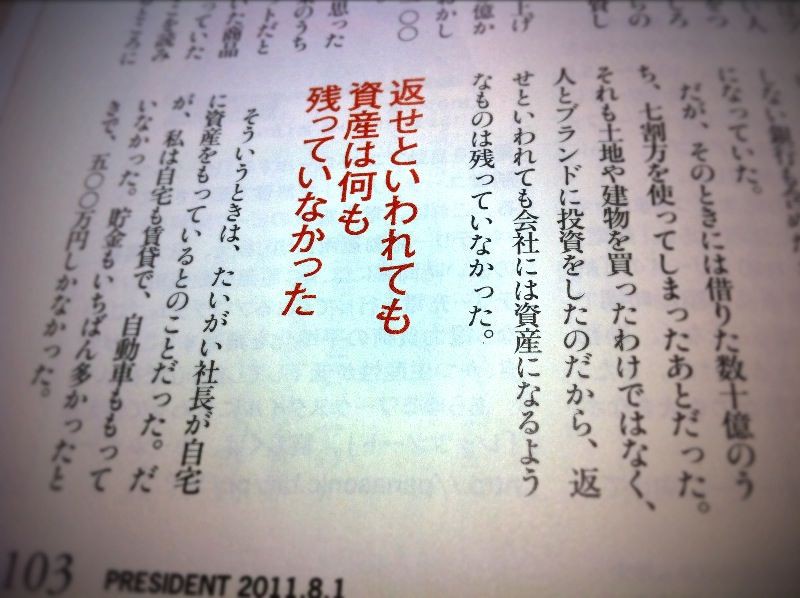 上げ
億か
〇〇
思った
のうち
いた商品
っていた
を読み
ところに
しない銀行も
になっていた。
だが、そのときには借りた数十億のう
ち、七割方を使ってしまったあとだった。
それも土地や建物を買ったわけではなく、
人とブランドに投資をしたのだから、返
せといわれても会社には資産になるよう
なものは残っていなかった。
返せといわれても
資産は何も
残っていなかった
そういうときは、たいがい社長が自宅
に資産をもっているとのことだった。だ
が、私は自宅も賃貸で、自動車ももって
いなかった。貯金もいちばん多かったと
きで、五〇〇万円しかなかった。
103 PRESIDENT 2011.8.1